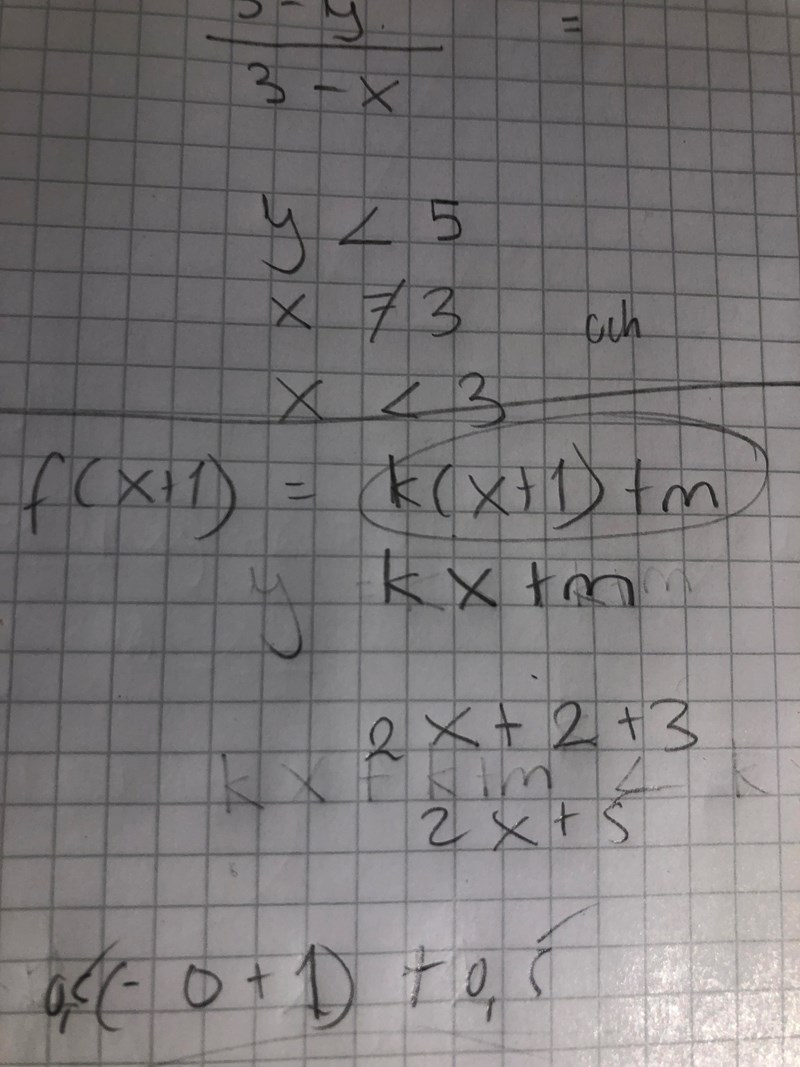 5-y =
3-x
y < 5
x ≠ 3 och
x < 3
f(x+1) = k(x+1)+m
y kx+m
2x+2+3
kx+k+m < k
2x+5
0,5(-0+1) +0,5